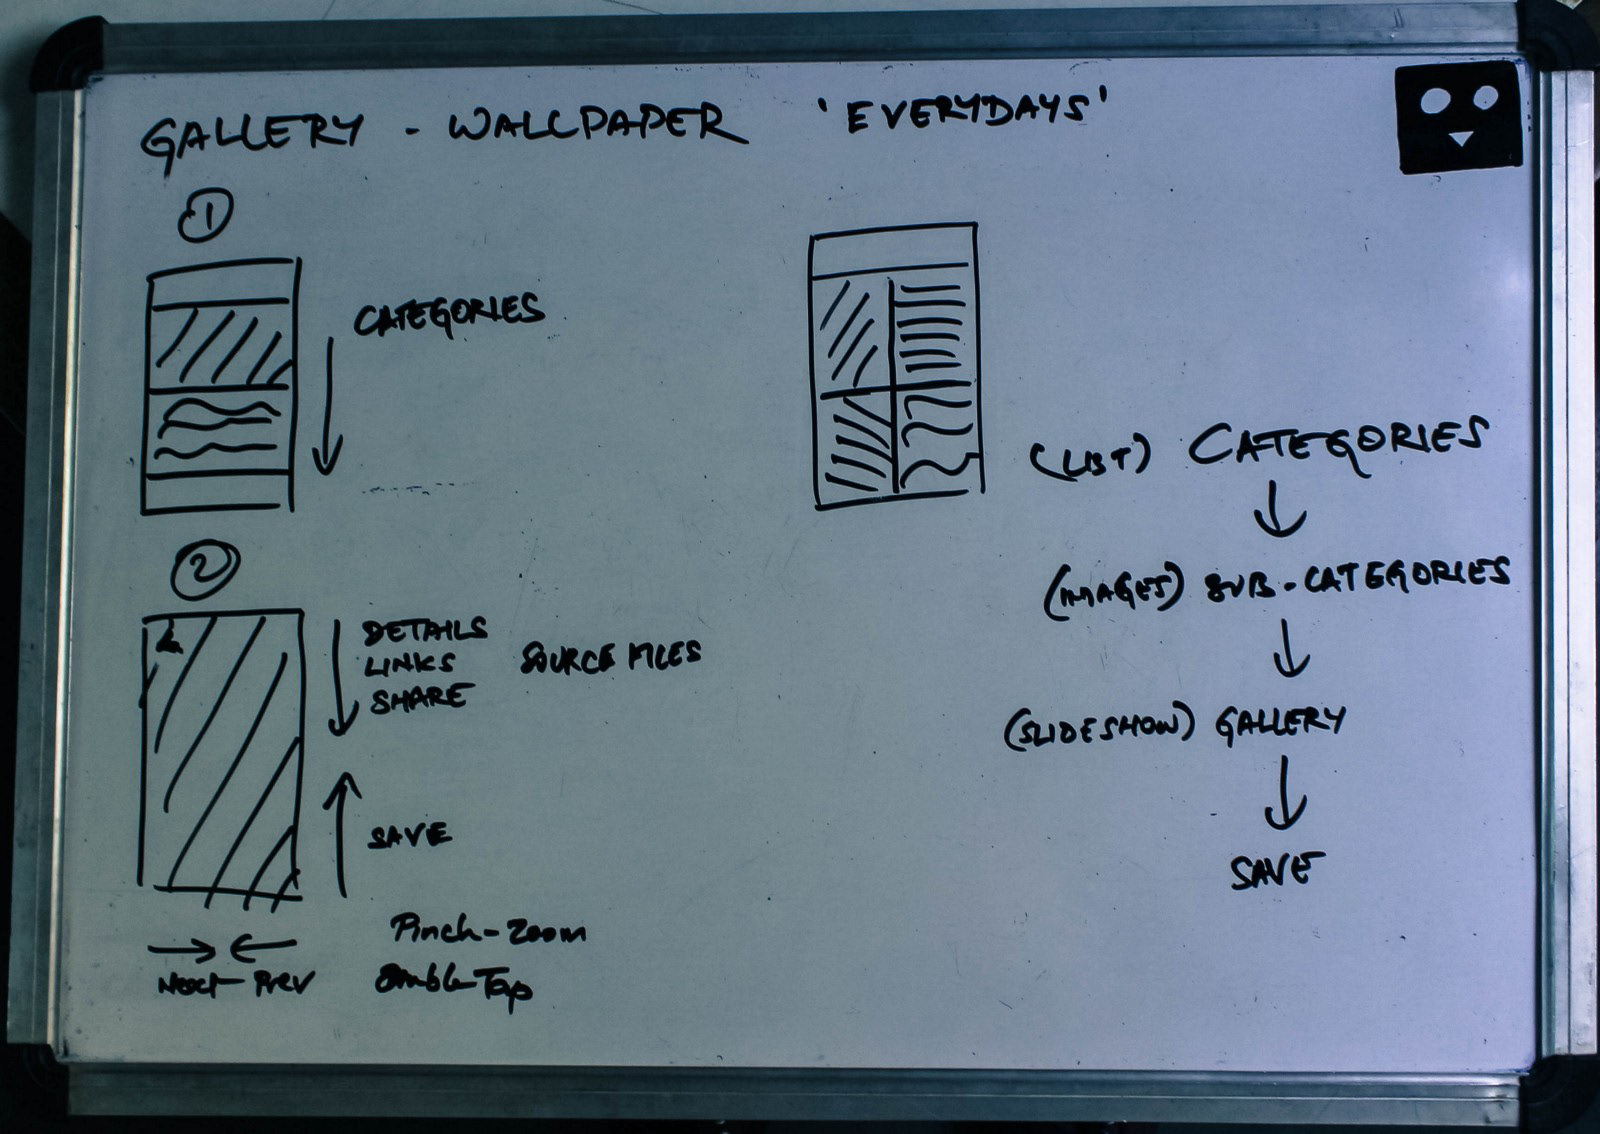 GALLERY - WALLPAPER 'EVERYDAYS'
1
CATEGORIES
2
DETAILS
LINKS SOURCE FILES
SHARE
SAVE
Next - Prev
Pinch-Zoom
Double-Tap
(LIST) CATEGORIES
(IMAGES) SUB-CATEGORIES
(SLIDESHOW) GALLERY
SAVE